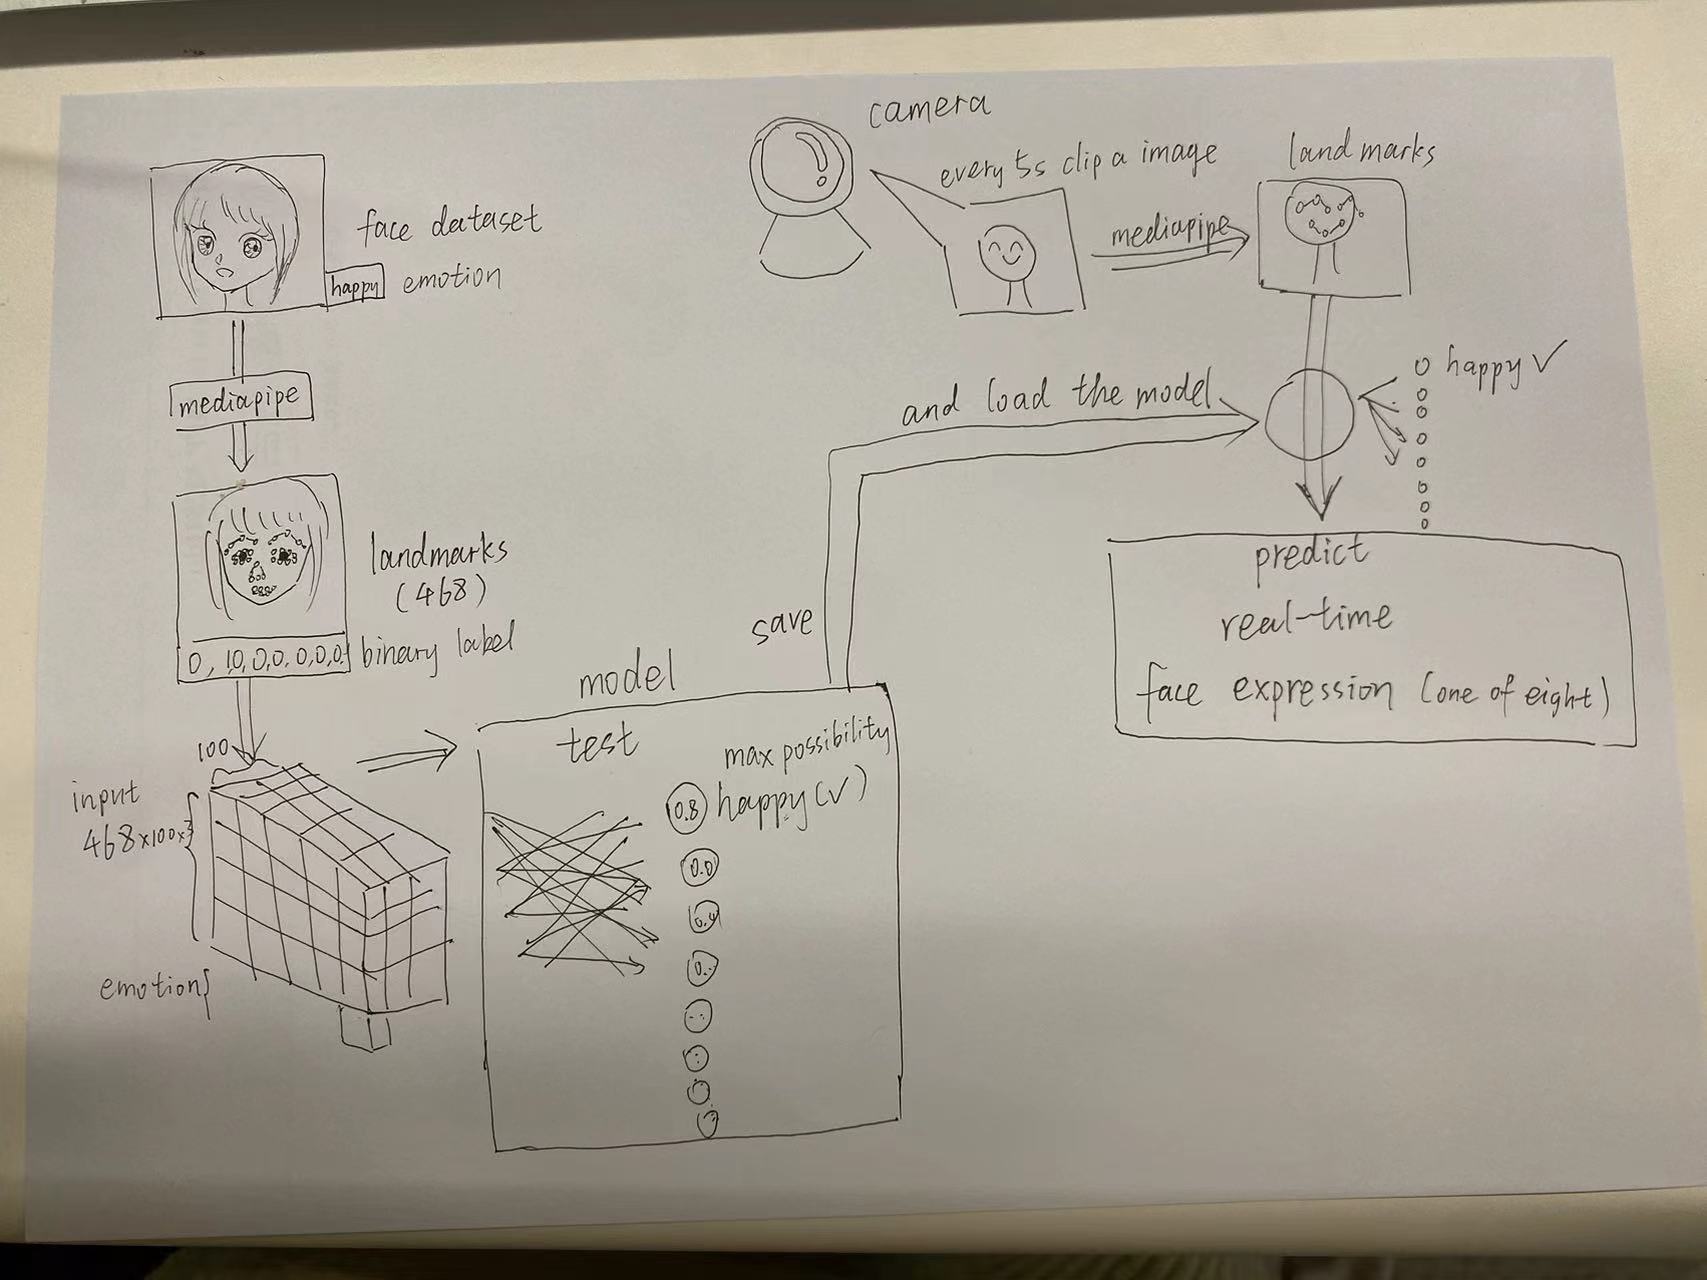 face dataset
happy
emotion
mediapipe
landmarks
(468)
0, 1,0,0,0,0,0,0.
binary label
100
input
468x100x3
emotion
model
test
max possibility
0.8 happy(√)
0.0
save
and load the model
camera
every 5s clip a image
mediapipe
landmarks
happy √
predict
real-time
face expression (one of eight)